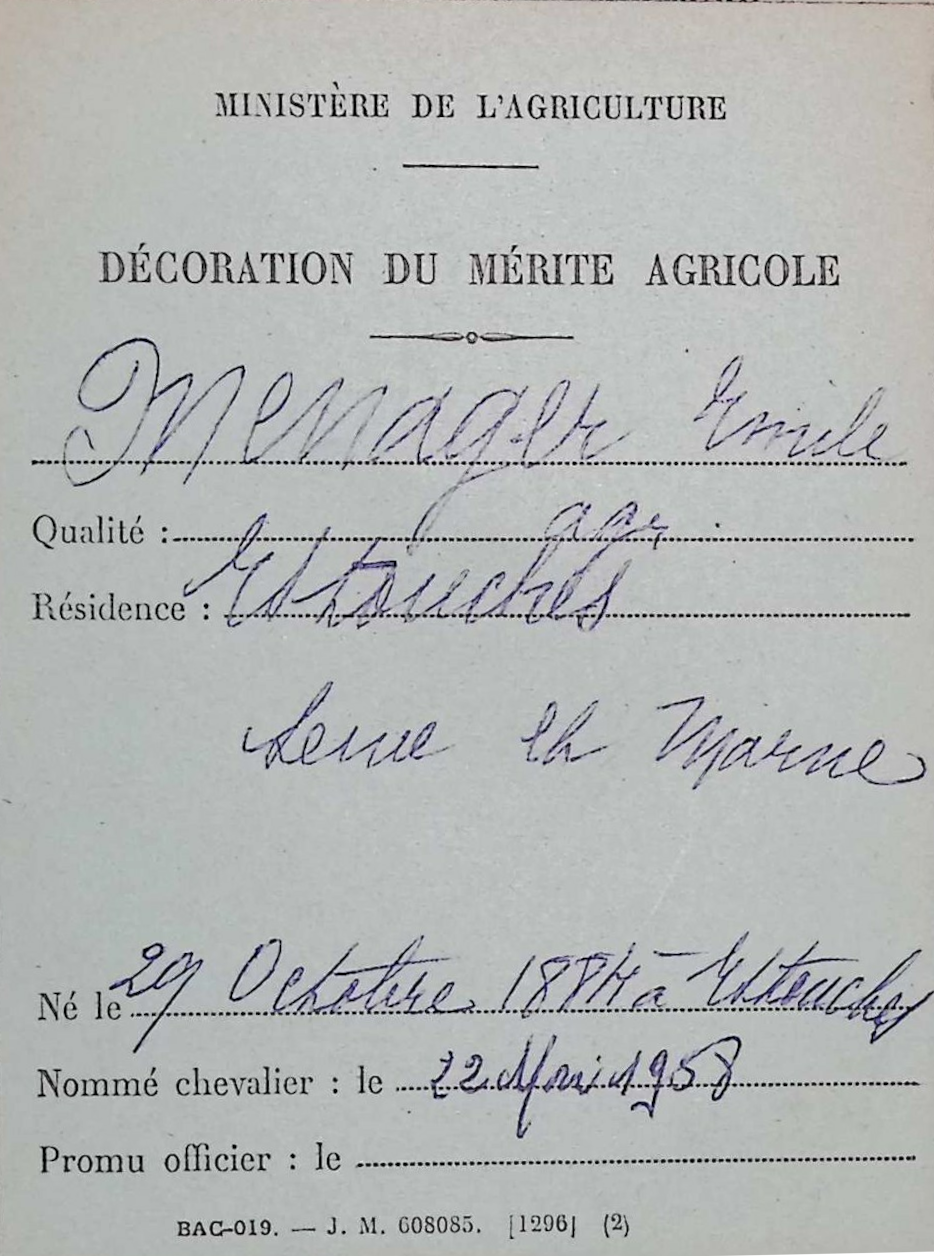 MINISTÈRE DE L'AGRICULTURE
DÉCORATION DU MÉRITE AGRICOLE
Menager Emile
Qualité : agr.
Résidence : Estouches
Seine et Marne
Né le 29 Octobre 1884 à Estouches
Nommé chevalier : le 22 Mai 1958
Promu officier : le
BAC-019. — J. M. 608085. [1296] (2)